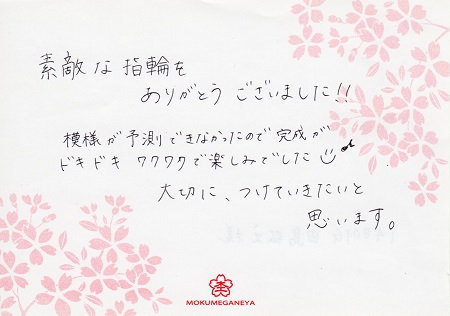 素敵な指輪を
ありがとうございました!!
模様が予測できなかったので完成が
ドキドキ ワクワクで楽しみでした
大切に、つけていきたいと
思います。
MOKUMEGANEYA